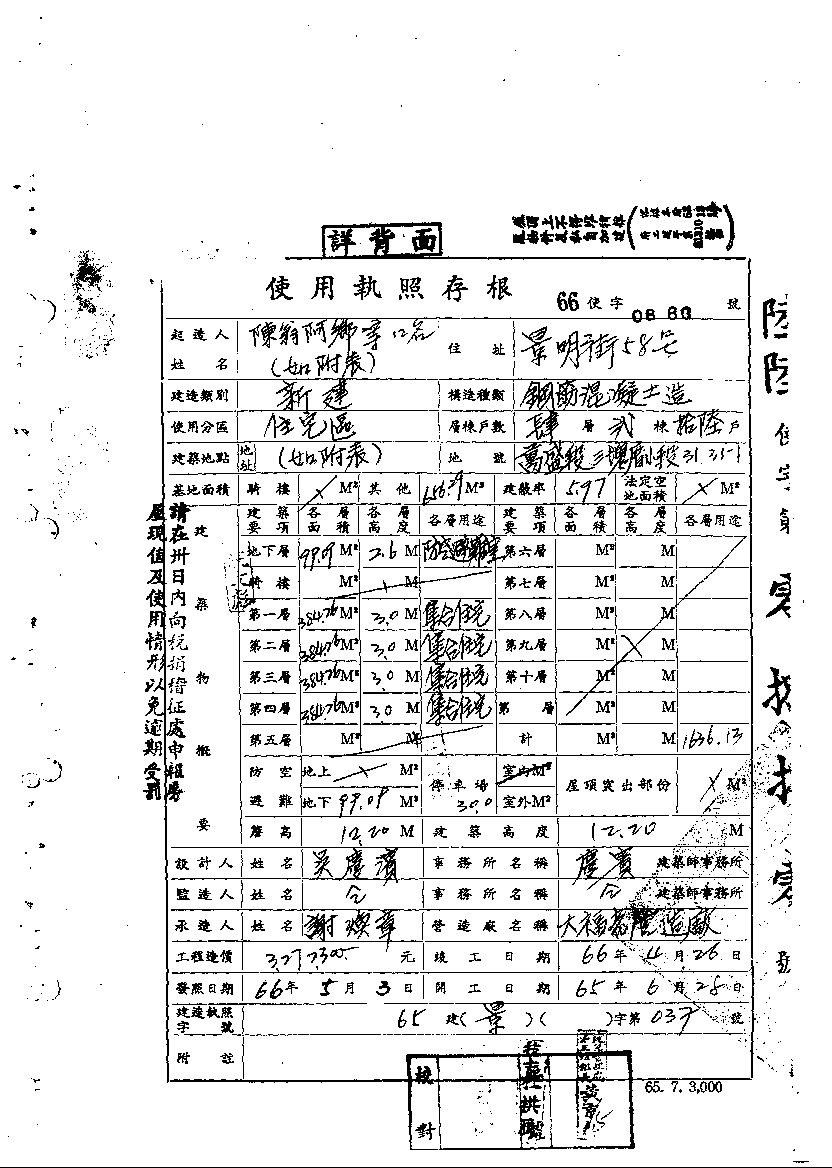 詳背面
使用執照存根 66 使字 0880 號
起造人姓名 陳翁阿鄉等12名 (如附表) 住址 景明街58號
建造類別 新建 構造種類 鋼筋混凝土造
使用分區 住宅區 層棟戶數 肆層 弍棟 拾陸戶
建築地點 地址 (如附表) 地號 萬盛段三塊厝小段
基地面積 騎樓 M² 其他 656.29 M² 建蔽率 5.97 法定空地面積 M²
建築物概要 建築要項 各層面積 各層高度 各層用途 建築要項 各層面積 各層高度 各層用途
地下層 99.09 M² 2.6 M 防空避難室 第六層 M² M
騎樓 M² M 第七層 M² M
第一層 384.26 M² 3.0 M 集合住宅 第八層 M² M
第二層 384.26 M² 3.0 M 集合住宅 第九層 M² M
第三層 384.26 M² 3.0 M 集合住宅 第十層 M² M
第四層 384.26 M² 3.0 M 集合住宅 第 層 M² M
第五層 M² M 計 M² M 1636.13
防空避難 地上 M² 停車場 室內M² 屋頂突出部份 M²
地下 99.09 M² 30.0 室外M²
簷高 12.20 M 建築高度 12.20 M
設計人 姓名 吳慶濱 事務所名稱 慶賓 建築師事務所
監造人 姓名 仝 事務所名稱 仝 建築師事務所
承造人 姓名 謝煥章 營造廠名稱 大福 營造廠
工程造價 元 竣工日期 66年4月26日
發照日期 66年5月3日 開工日期 65年6月28日
建造執照字號 65 建(景)( )字第 037 號
附註
校對
65. 7. 3,000
請在卅日內向稅捐稽征處申報房
屋現值及使用情形以免逾期受罰